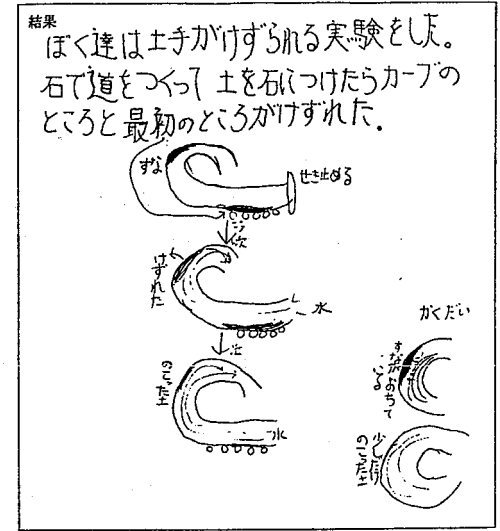 結果
ぼく達は土手がけずられる実験をした。
石で道をつくって 土を石につけたらカーブの
ところと最初のところがけずれた.
すな
せき止める
次
けずれた
水
かくだい
次
すながおちて
いる
のこった土
水
のこった土